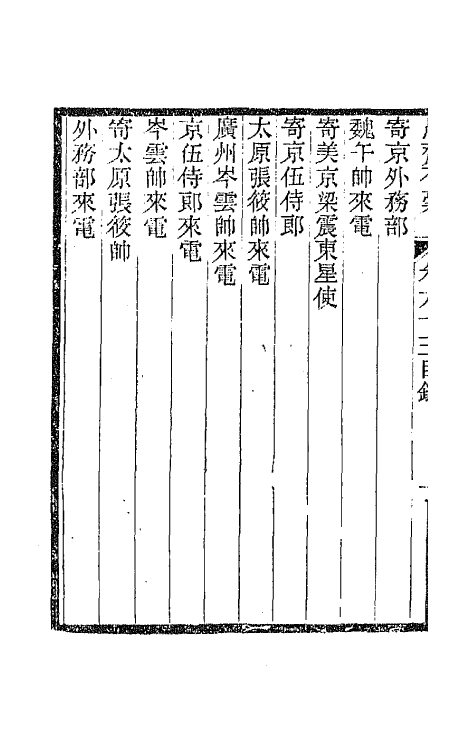 寄京外務部
魏午帥來電
寄美京梁震東星使
寄京伍侍郎
太原張筱帥來電
廣州岑雲帥來電
京伍侍郎來電
岑雲帥來電
寄太原張筱帥
外務部來電